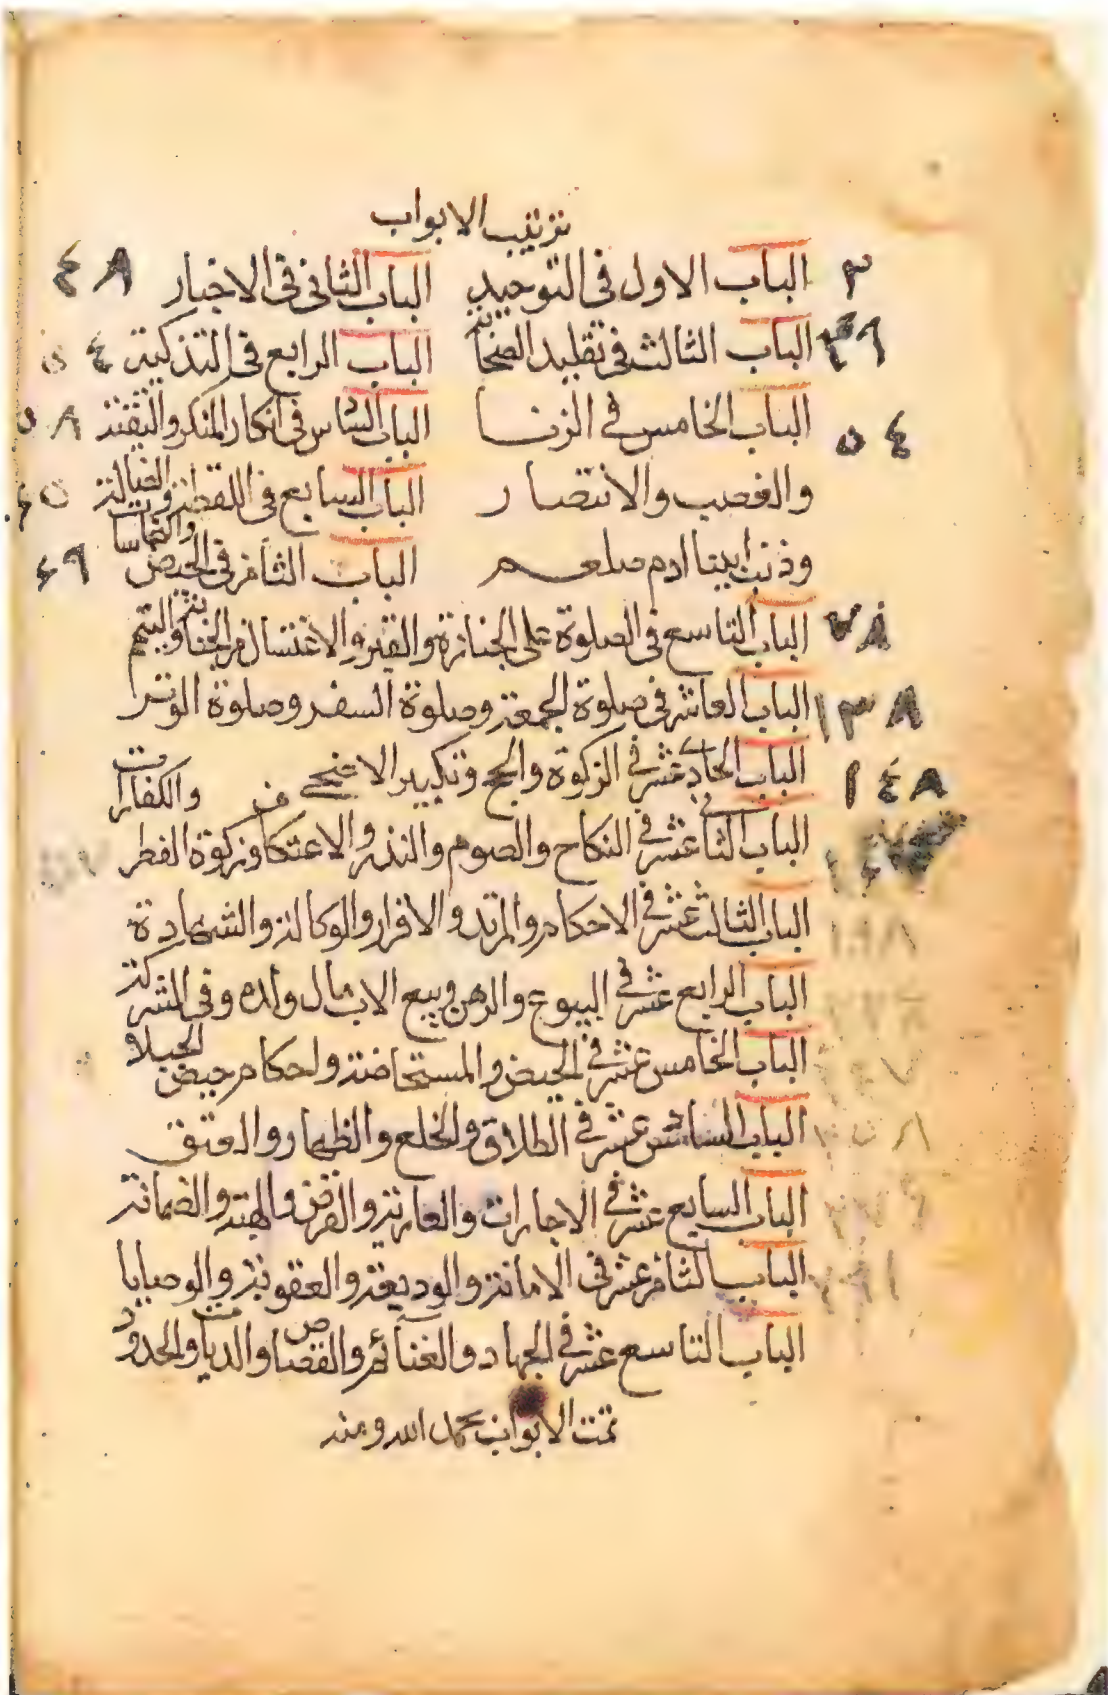 ترتيب الابواب
٣ الباب الاول في التوحيد الباب الثاني في الاخبار ٤٨
الباب الثالث في تقليد الصحابة الباب الرابع في التذكية ٥٤
٥٤ الباب الخامس في الزنا الباب السادس في انكار المنكر والتقية ٥٨
والغصب والانتصار الباب السابع في اللقطة والضالة
والنجاسات
وذنب ابينا ادم صلعم الباب الثامن في الحيض ٦٩
٧٨ الباب التاسع في الصلوة على الجنازة والقبر والاغتسال من الجنابة والتيمم
١٣٨ الباب العاشر في صلوة الجمعة وصلوة السفر وصلوة الوتر
١٤٨ الباب الحادي عشر في الزكوة والحج وتكبير الاضحى والكفارات
الباب الثاني عشر في النكاح والصوم والنذر والاعتكاف وزكوة الفطر
الباب الثالث عشر في الاحكام والمرتد والاقرار والوكالة والشهادة
الباب الرابع عشر في البيوع والرهن وبيع الاب مال ولده وفي الشركة
الباب الخامس عشر في الحيض والمستحاضة واحكام حيض الحبلا
الباب السادس عشر في الطلاق والخلع والظهار والعتق
الباب السابع عشر في الاجارات والعارية والقرض والهبة والضمانة
الباب الثامن عشر في الامانة والوديعة والعقوبة والوصايا
الباب التاسع عشر في الجهاد والغنائم والقصاص والديات والحدود
تمت الابواب بحمد الله ومنه